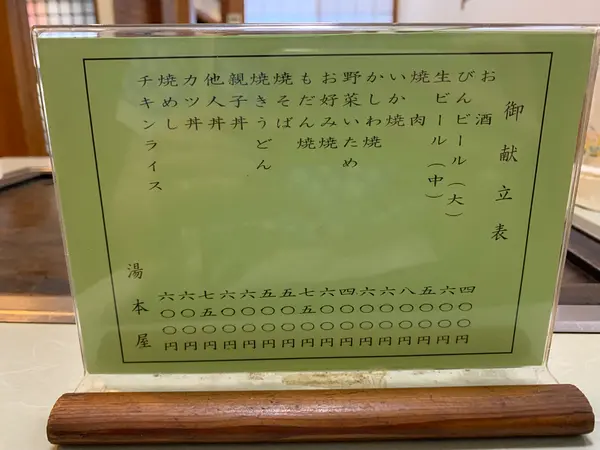 御献立表
お酒 四〇〇円
びんビール(大) 六〇〇円
生ビール(中) 五〇〇円
焼肉 八〇〇円
いか焼 六〇〇円
かしわ焼 六〇〇円
野菜いため 四〇〇円
お好み焼 六〇〇円
もだん焼 七五〇円
焼そば 五〇〇円
焼きうどん 五〇〇円
親子丼 六〇〇円
他人丼 六〇〇円
カツ丼 七五〇円
焼めし 六〇〇円
チキンライス 六〇〇円
湯本屋